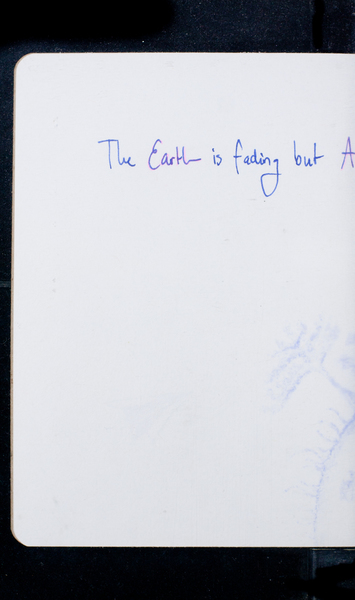 The Earth is fading but A